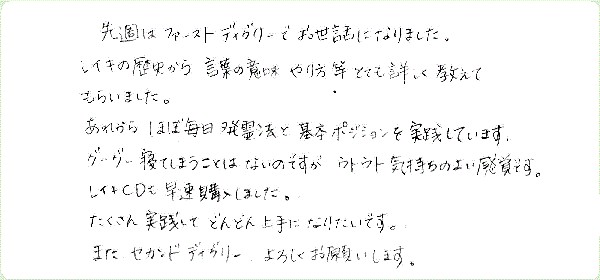 先週はファーストディグリーでお世話になりました。
レイキの歴史から言葉の意味やり方等とても詳しく教えて
もらいました。
あれからほぼ毎日発霊法と基本ポジションを実践しています。
グーグー寝てしまうことはないのですがウトウト気持ちのよい感覚です。
レイキCDも早速購入しました。
たくさん実践してどんどん上手になりたいです。
またセカンドディグリーよろしくお願いします。